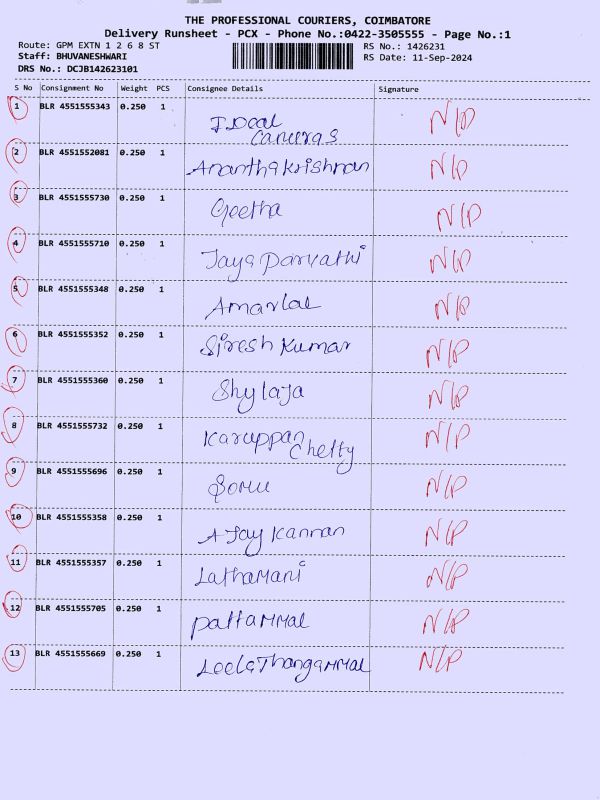 THE PROFESSIONAL COURIERS, COIMBATORE
Delivery Runsheet - PCX - Phone No.:0422-3505555 - Page No.:1
Route: GPM EXTN 1 2 6 8 ST RS No.: 1426231
Staff: BHUVANESHWARI RS Date: 11-Sep-2024
DRS No.: DCJB142623101
S No Consignment No Weight PCS Consignee Details Signature
1 BLR 4551555343 0.250 1 Ideal Cameras N/P
2 BLR 4551552081 0.250 1 Ananthakrishnan N/P
3 BLR 4551555730 0.250 1 Geetha N/P
4 BLR 4551555710 0.250 1 Jaya Parvathi N/P
5 BLR 4551555348 0.250 1 Amarlal N/P
6 BLR 4551555352 0.250 1 Siresh Kumar N/P
7 BLR 4551555360 0.250 1 Shylaja N/P
8 BLR 4551555732 0.250 1 Karuppan Chetty N/P
9 BLR 4551555696 0.250 1 Somu N/P
10 BLR 4551555358 0.250 1 AJay Kannan N/P
11 BLR 4551555357 0.250 1 LathaMani N/P
12 BLR 4551555705 0.250 1 PattaMMal N/P
13 BLR 4551555669 0.250 1 LeelaThangaMMal N/P